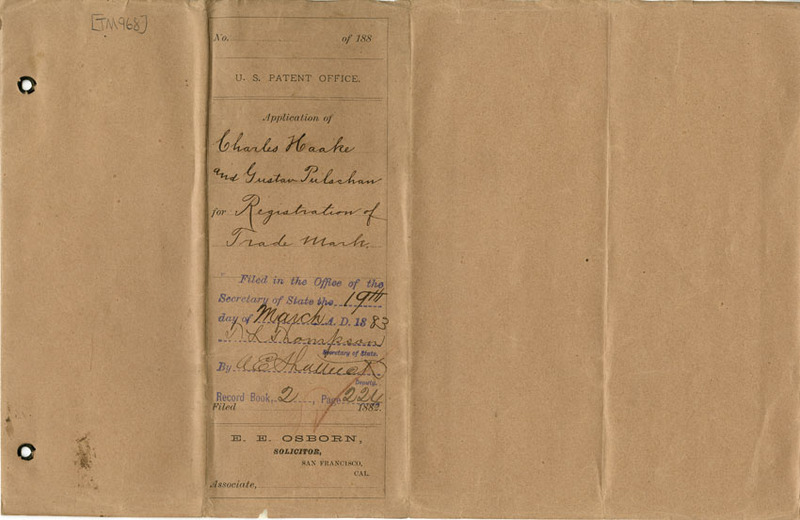 [TM968]
No. of 188
U. S. PATENT OFFICE.
Application of
Charles Haake
and Gustav Pülschan
for Registration of
Trade Mark.
Filed in the Office of the
Secretary of State the 19th
day of March A. D. 1883
Thompson
Secretary of State.
By A E Shattuck
Deputy.
Record Book, 2, Page 224
Filed 1882.
E. E. OSBORN,
SOLICITOR,
SAN FRANCISCO,
CAL.
Associate,